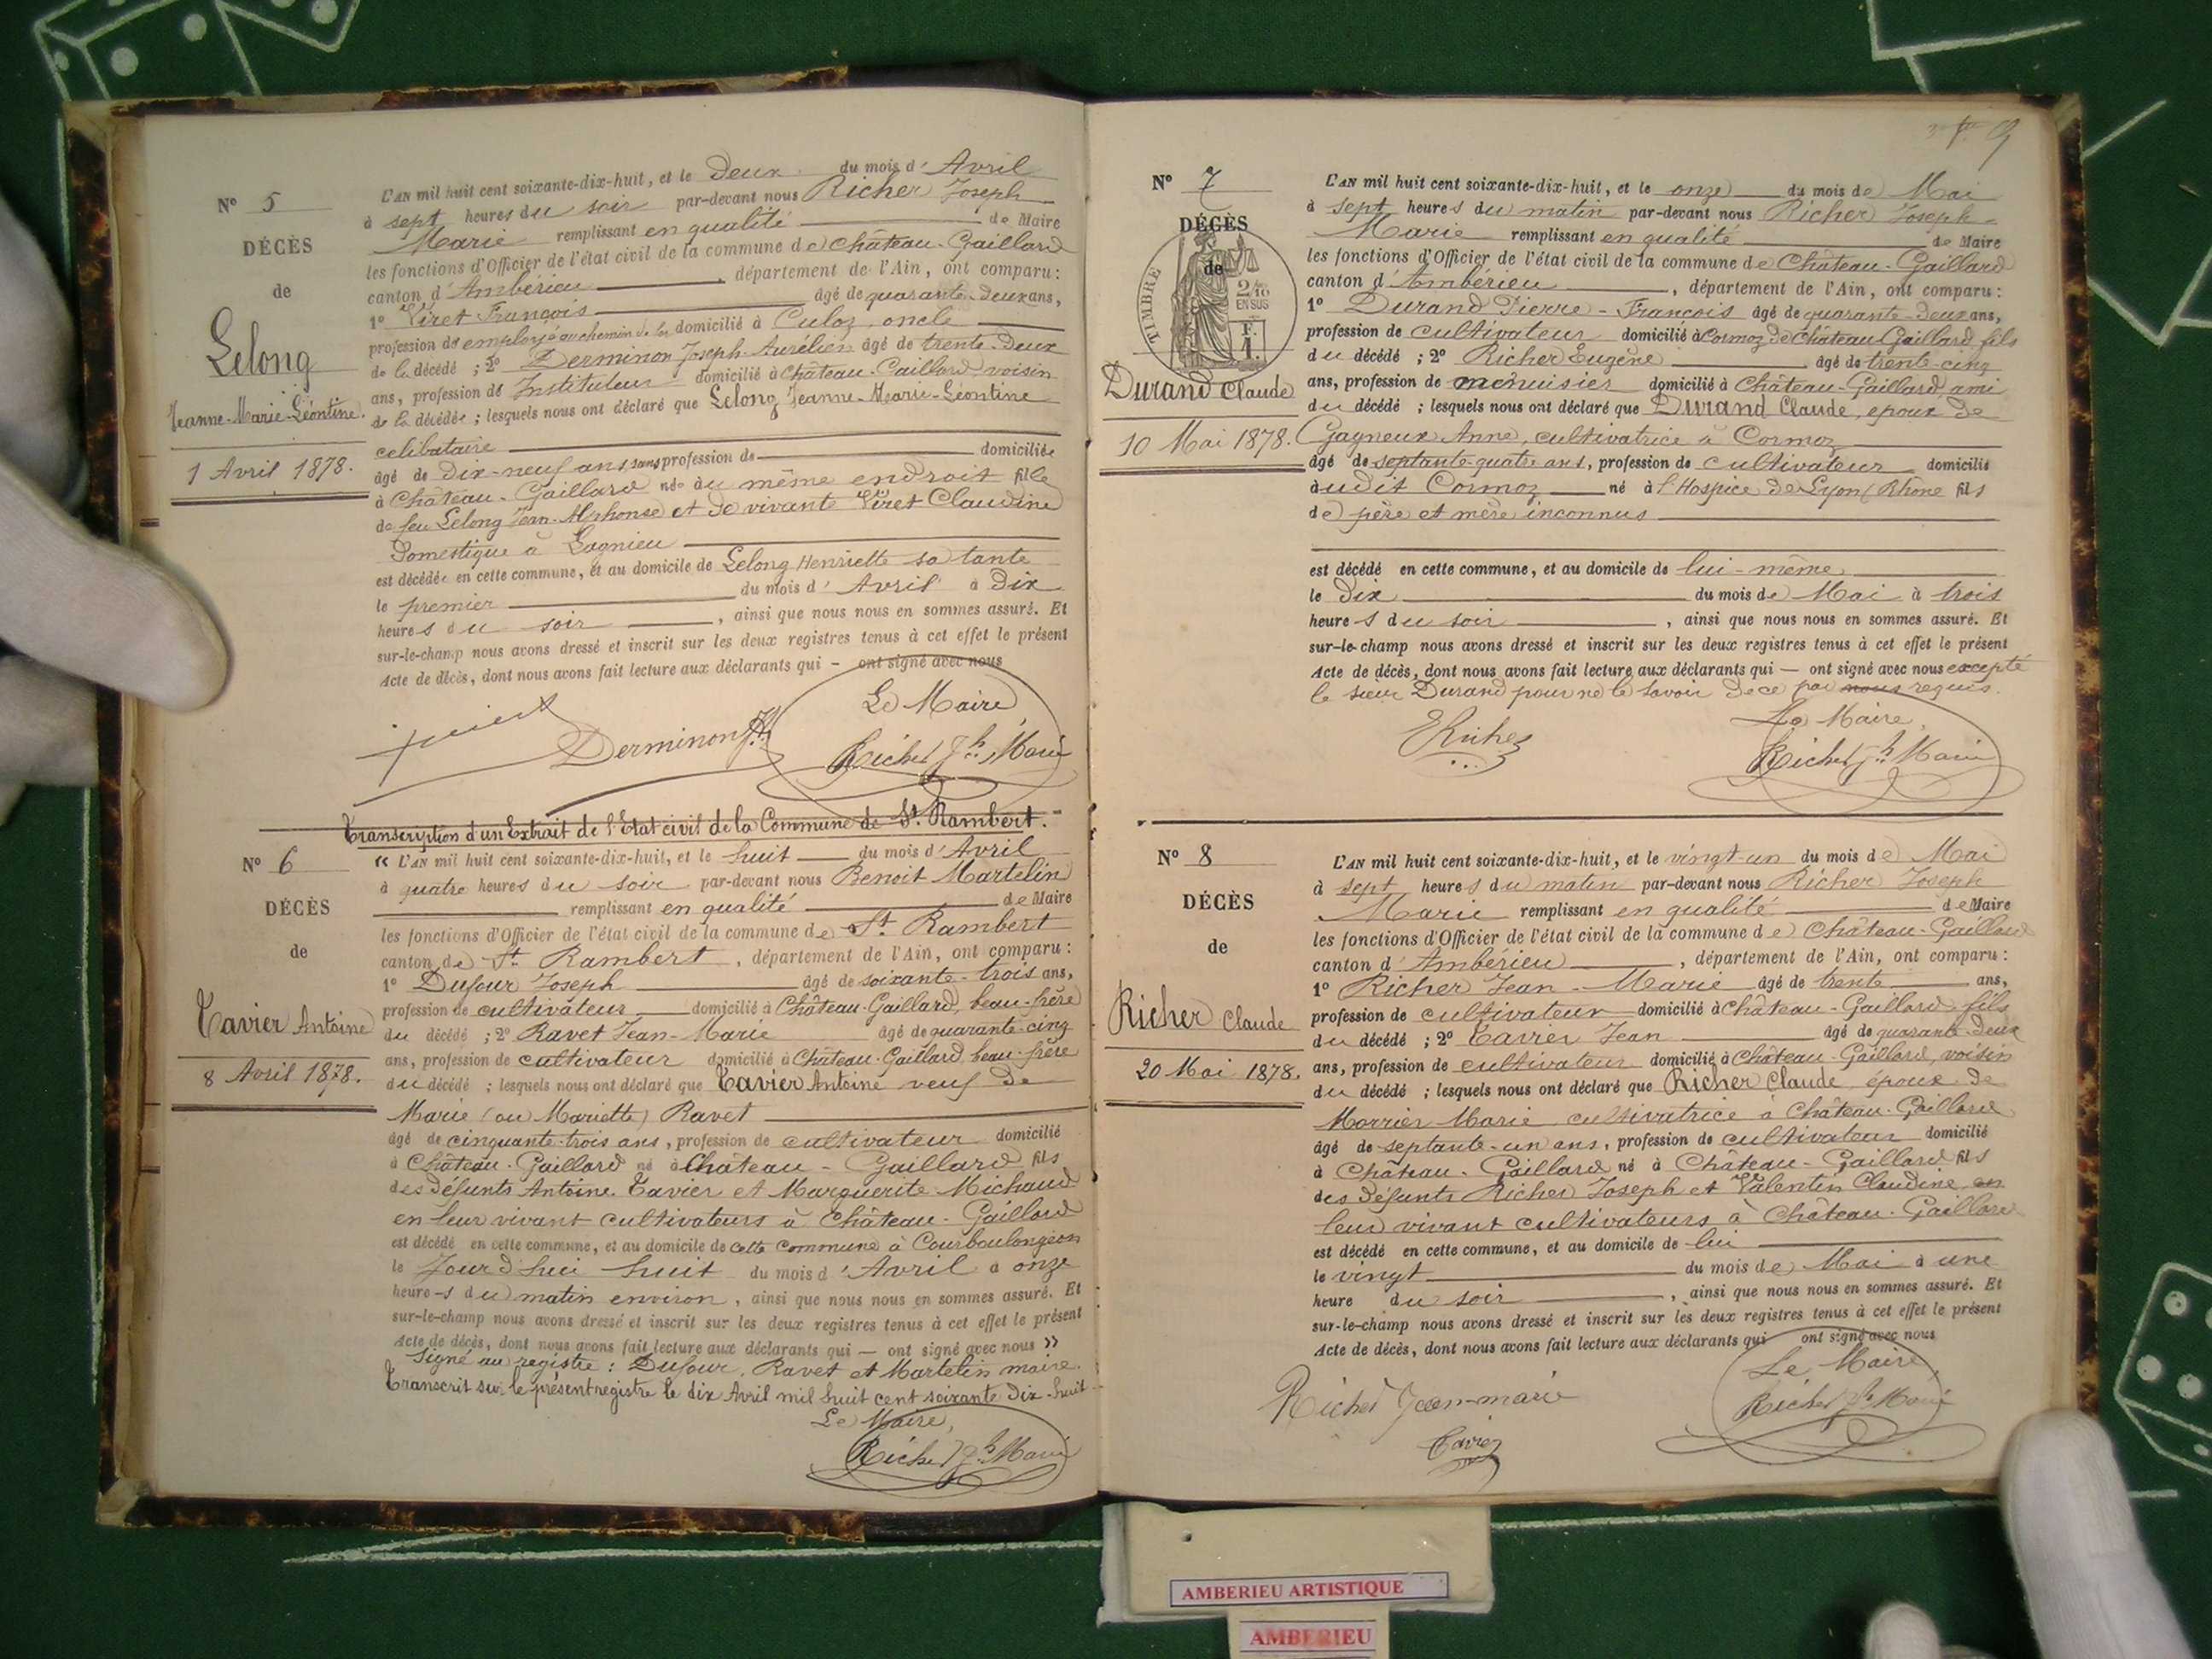 N° 5
DÉCÈS
de
Lelong
Jeanne-Marie-Léontine.
1 Avril 1878.
L'AN mil huit cent soixante-dix-huit, et le Deux du mois d'Avril
à sept heures du soir par-devant nous Richer Joseph
Marie remplissant en qualité de Maire
les fonctions d'Officier de l'état civil de la commune de Château-Gaillard
canton d'Ambérieu, département de l'Ain, ont comparu:
1° Viret François âgé de quarante-deux ans,
profession de employé au chemin de fer domicilié à Culoz, oncle
de la décédé; 2° Derminon Joseph-Aurélien âgé de trente-deux
ans, profession de Instituteur domicilié à Château-Gaillard voisin
de la décédée; lesquels nous ont déclaré que Lelong Jeanne-Marie-Léontine
celibataire domiciliée
âgé de dix-neuf ans, sans profession de
à Château-Gaillard née au même endroit fille
de feu Lelong Jean-Alphonse et de vivante Viret Claudine
Domestique à Lagnieu
est décédée en cette commune, et au domicile de Lelong Henriette sa tante
le premier du mois d'Avril à dix
heures du soir, ainsi que nous nous en sommes assuré. Et
sur-le-champ nous avons dressé et inscrit sur les deux registres tenus à cet effet le présent
Acte de décès, dont nous avons fait lecture aux déclarants qui — ont signé avec nous
Le Maire
Derminon Jh Richer Jh Marie
Transcription d'un Extrait de l'Etat civil de la Commune de St. Rambert.
N° 6
DÉCÈS
de
Tavier Antoine
8 Avril 1878.
« L'AN mil huit cent soixante-dix-huit, et le huit du mois d'Avril
à quatre heures du soir par-devant nous Benoit Martelin
remplissant en qualité de Maire
les fonctions d'Officier de l'état civil de la commune de St. Rambert
canton de St. Rambert, département de l'Ain, ont comparu:
1° Dufour Joseph âgé de soixante-trois ans,
profession de cultivateur domicilié à Château-Gaillard, beau-frère
du décédé; 2° Ravet Jean-Marie âgé de quarante-cinq
ans, profession de cultivateur domicilié à Château-Gaillard, beau-frère
du décédé; lesquels nous ont déclaré que Tavier Antoine veuf de
Marie (ou Mariette) Ravet
âgé de cinquante-trois ans, profession de cultivateur domicilié
à Château-Gaillard né à Château-Gaillard fils
des défunts Antoine Tavier et Marguerite Michaud
en leur vivant cultivateurs à Château-Gaillard
est décédé en cette commune, et au domicile de cette commune à Courboulongeon
le Jourd'hui huit du mois d'Avril à onze
heures du matin environ, ainsi que nous nous en sommes assuré. Et
sur-le-champ nous avons dressé et inscrit sur les deux registres tenus à cet effet le présent
Acte de décès, dont nous avons fait lecture aux déclarants qui — ont signé avec nous »
Signé au registre: Dufour, Ravet et Martelin maire.
Transcrit sur le présent registre le dix Avril mil huit cent soixante-dix-huit
Le Maire,
Richer Jh Marie
9
N° 7
DÉCÈS
de
TIMBRE
2/10
EN SUS
F.
1.
Durand Claude
10 Mai 1878.
L'AN mil huit cent soixante-dix-huit, et le onze du mois de Mai
à sept heures du matin par-devant nous Richer Joseph-
Marie remplissant en qualité de Maire
les fonctions d'Officier de l'état civil de la commune de Château-Gaillard
canton d'Ambérieu, département de l'Ain, ont comparu:
1° Durand Pierre-François âgé de quarante-deux ans,
profession de cultivateur domicilié à Cormoz de Château Gaillard, fils
du décédé; 2° Richer Eugène âgé de trente-cinq
ans, profession de menuisier domicilié à Château-Gaillard, ami
du décédé; lesquels nous ont déclaré que Durand Claude, epoux de
Gagneux Anne, cultivatrice à Cormoz
âgé de septante-quatre ans, profession de cultivateur domicilié
audit Cormoz né à l'Hospice de Lyon (Rhône fils
de père et mère inconnus
est décédé en cette commune, et au domicile de lui-même
le dix du mois de Mai à trois
heures du soir, ainsi que nous nous en sommes assuré. Et
sur-le-champ nous avons dressé et inscrit sur les deux registres tenus à cet effet le présent
Acte de décès, dont nous avons fait lecture aux déclarants qui — ont signé avec nous excepté
le sieur Durand pour ne le savoir de ce par nous requis.
Le Maire,
E Richer Richer Jh Marie
N° 8
DÉCÈS
de
Richer Claude
20 Mai 1878.
L'AN mil huit cent soixante-dix-huit, et le vingt-un du mois de Mai
à sept heures du matin par-devant nous Richer Joseph
Marie remplissant en qualité de Maire
les fonctions d'Officier de l'état civil de la commune de Château-Gaillard
canton d'Ambérieu, département de l'Ain, ont comparu:
1° Richer Jean-Marie âgé de trente ans,
profession de cultivateur domicilié à Château-Gaillard fils
du décédé; 2° Tavier Jean âgé de quarante-deux
ans, profession de cultivateur domicilié à Château-Gaillard, voisin
du décédé; lesquels nous ont déclaré que Richer Claude, époux de
Morrier Marie cultivatrice à Château-Gaillard
âgé de septante-un ans, profession de cultivateur domicilié
à Château-Gaillard né à Château-Gaillard fils
des défunts Richer Joseph et Valentin Claudine, en
leur vivant cultivateurs à Château-Gaillard
est décédé en cette commune, et au domicile de lui
le vingt du mois de Mai à une
heure du soir, ainsi que nous nous en sommes assuré. Et
sur-le-champ nous avons dressé et inscrit sur les deux registres tenus à cet effet le présent
Acte de décès, dont nous avons fait lecture aux déclarants qui ont signé avec nous
Le Maire,
Richer Jean-marie Richer Jh Marie
Tavier
AMBERIEU ARTISTIQUE
AMBERIEU